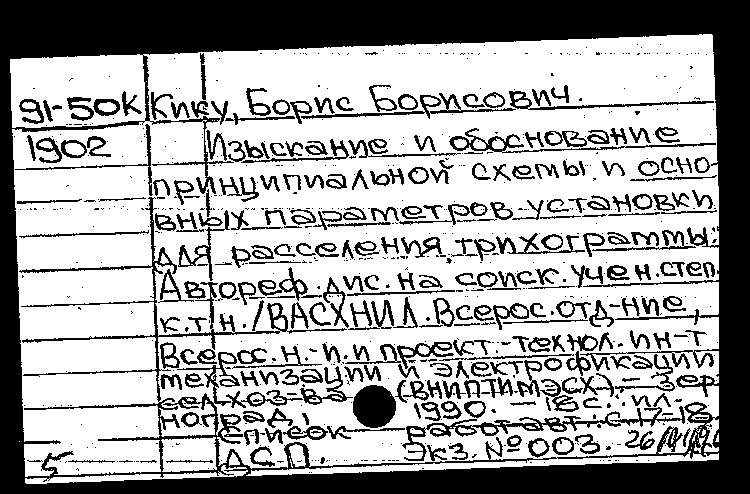 91-50К Кику, Борис Борисович.
1902 Изыскание и обоснование
принципиальной схемы и осно-
вных параметров установки
для расселения трихограммы:
Автореф. дис. на соиск. учен. степ.
к.т.н. /ВАСХНИЛ. Всерос. отд-ние,
Всерос. н.-и. и проект.-технол. ин-т
механизации и электрофикации
сел. хоз-ва (ВНИПТИМЭСХ). - Зер-
ноград, 1990. - 18 с. ил. -
Список работ авт.: с. 17-18
ДСП. Экз. № 003.
5